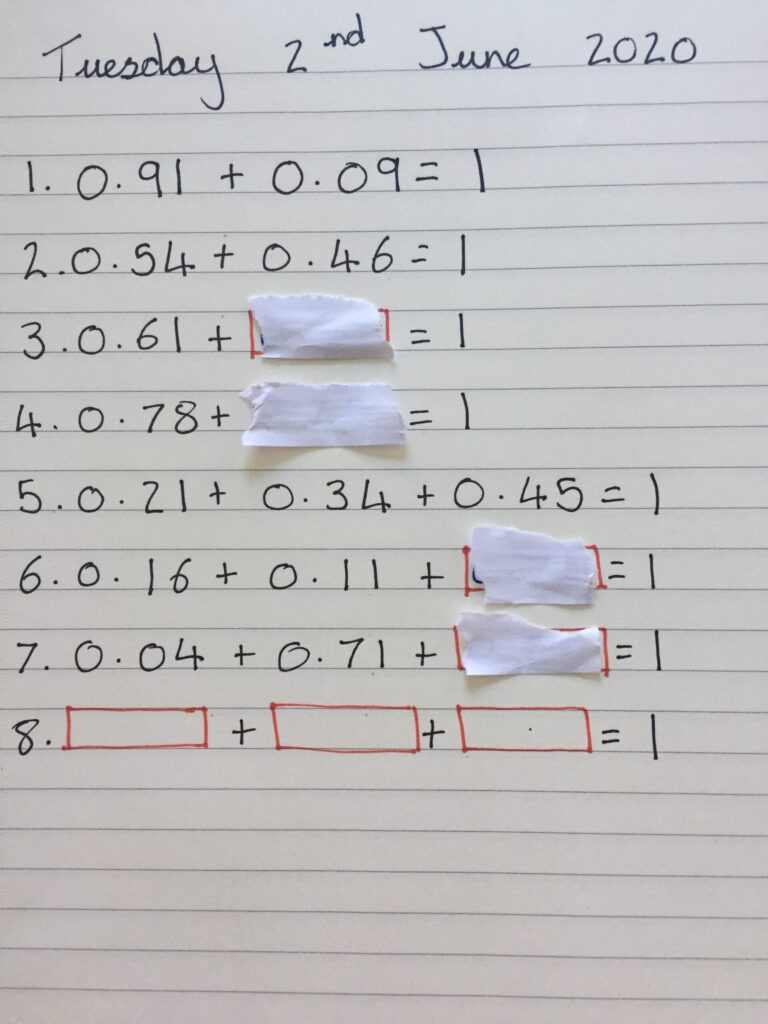 Tuesday 2nd June 2020
1. 0.91 + 0.09 = 1
2. 0.54 + 0.46 = 1
3. 0.61 + = 1
4. 0.78 + = 1
5. 0.21 + 0.34 + 0.45 = 1
6. 0.16 + 0.11 + = 1
7. 0.04 + 0.71 + = 1
8. + + = 1